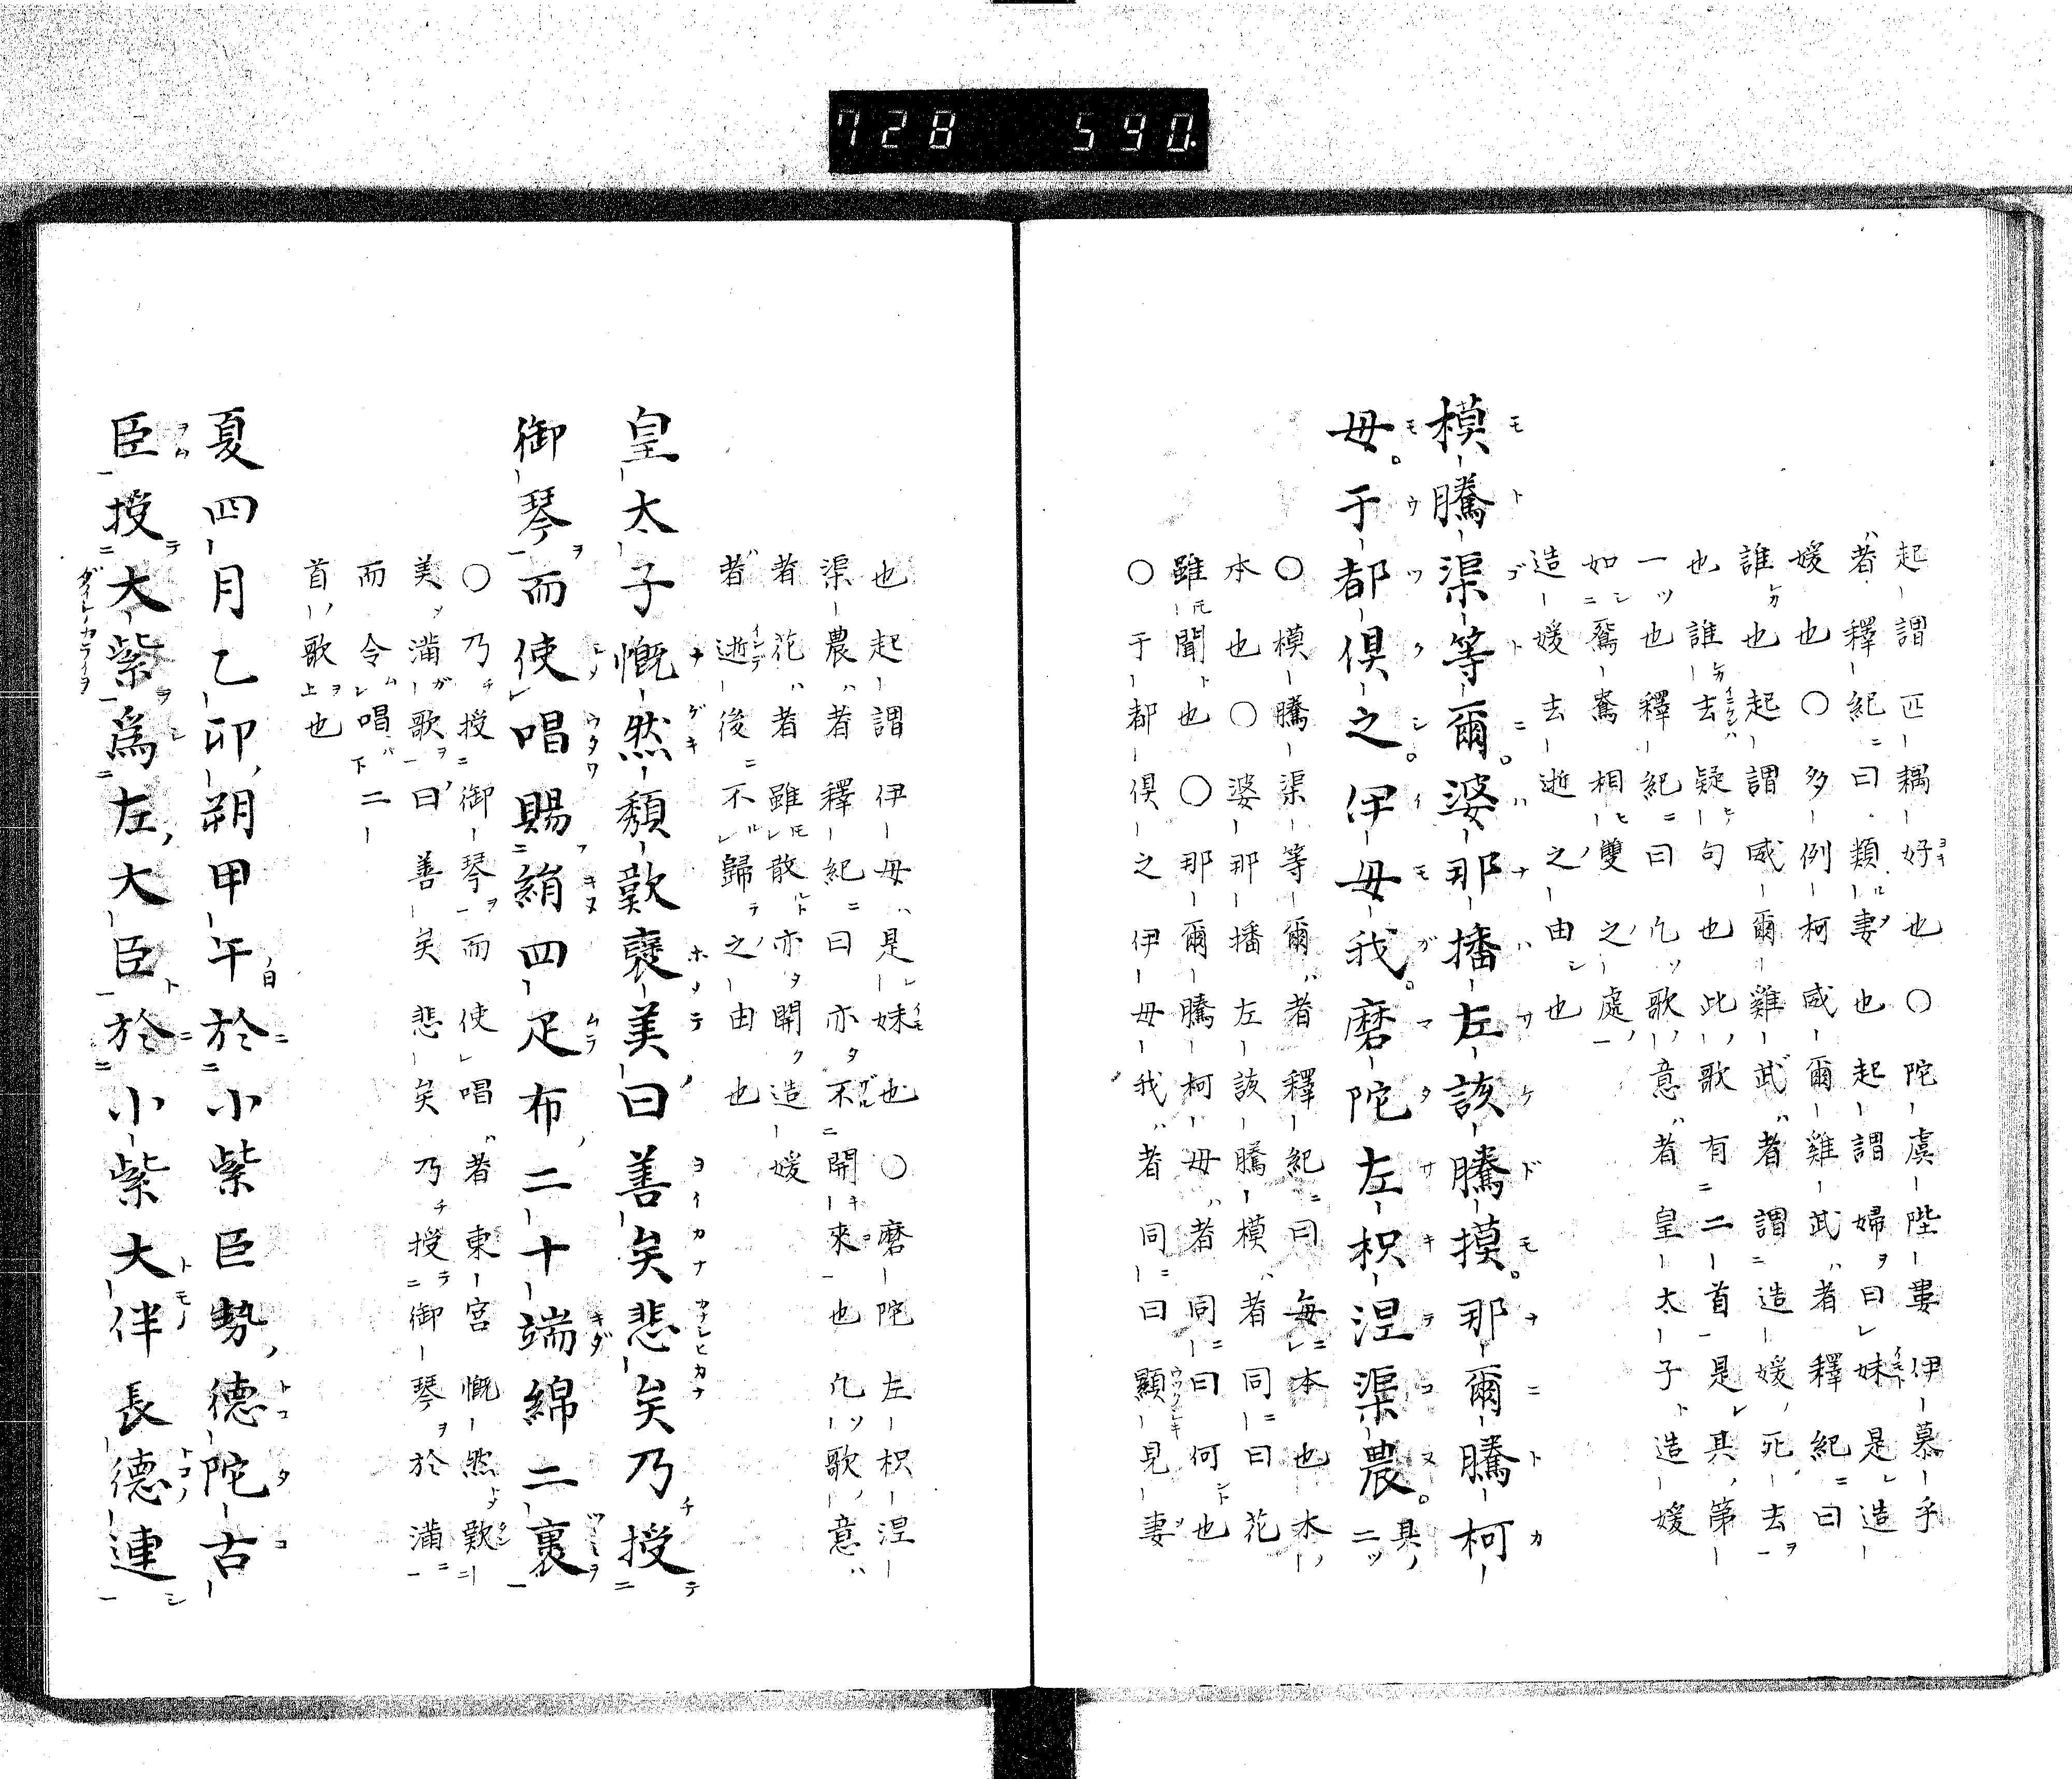 728 590.
起謂匹耦好也○陀虞陛婁伊慕乎
者釋紀曰類妻也起謂婦曰妹是造
媛也○多例柯威爾雞武者釋紀曰
誰也起謂威爾雞武者謂造媛死去
也誰去疑句也此歌有二首是其第
一ツ也釋紀曰凡歌意者皇太子造媛
如鴛鴦相雙之處
造媛去逝之由也
模騰渠等爾婆那播左該騰摸那爾騰柯
母于都俱之伊母我磨陀左枳涅渠農其二
○模騰渠等爾者釋紀曰每本也本
本也○婆那播左該騰模者同曰花
雖聞也○那爾騰柯母者同曰何也
○于都俱之伊母我者同曰顯見妻
也起謂伊母是妹也○磨陀左枳涅
渠農者釋紀曰亦不開來也凡歌意
者花者雖散亦開造媛
者逝後不歸之由也
皇太子慨然頽歎褒美曰善矣悲矣乃授
御琴而使唱賜絹四疋布二十端綿二裹
○乃授御琴而使唱者東宮慨然歎
美滿歌曰善矣悲矣乃授御琴於滿
而令唱二
首歌上也
夏四月乙卯朔甲午於小紫巨勢德陀古
臣授大紫爲左大臣於小紫大伴長德連